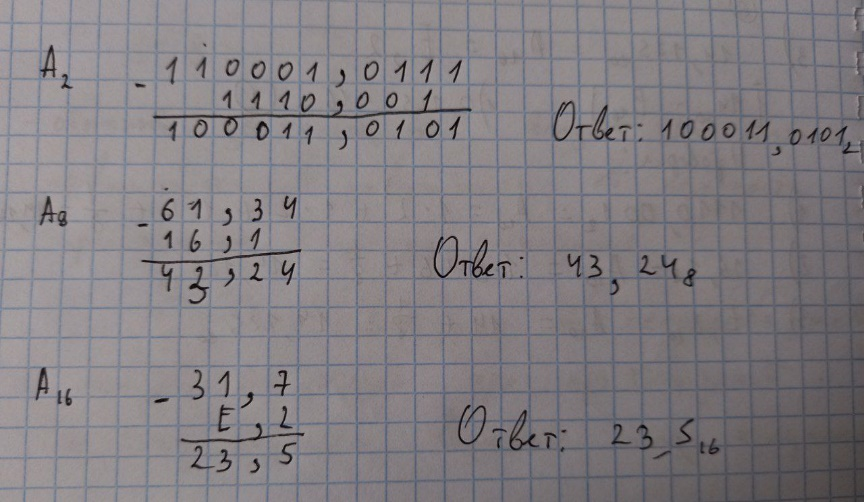 A2 - 110001,0111
1110,001
100011,0101 Ответ: 100011,01012
A8 - 61,34
16,1
43,24 Ответ: 43,248
A16 - 31,7
E,2
23,5 Ответ: 23,516